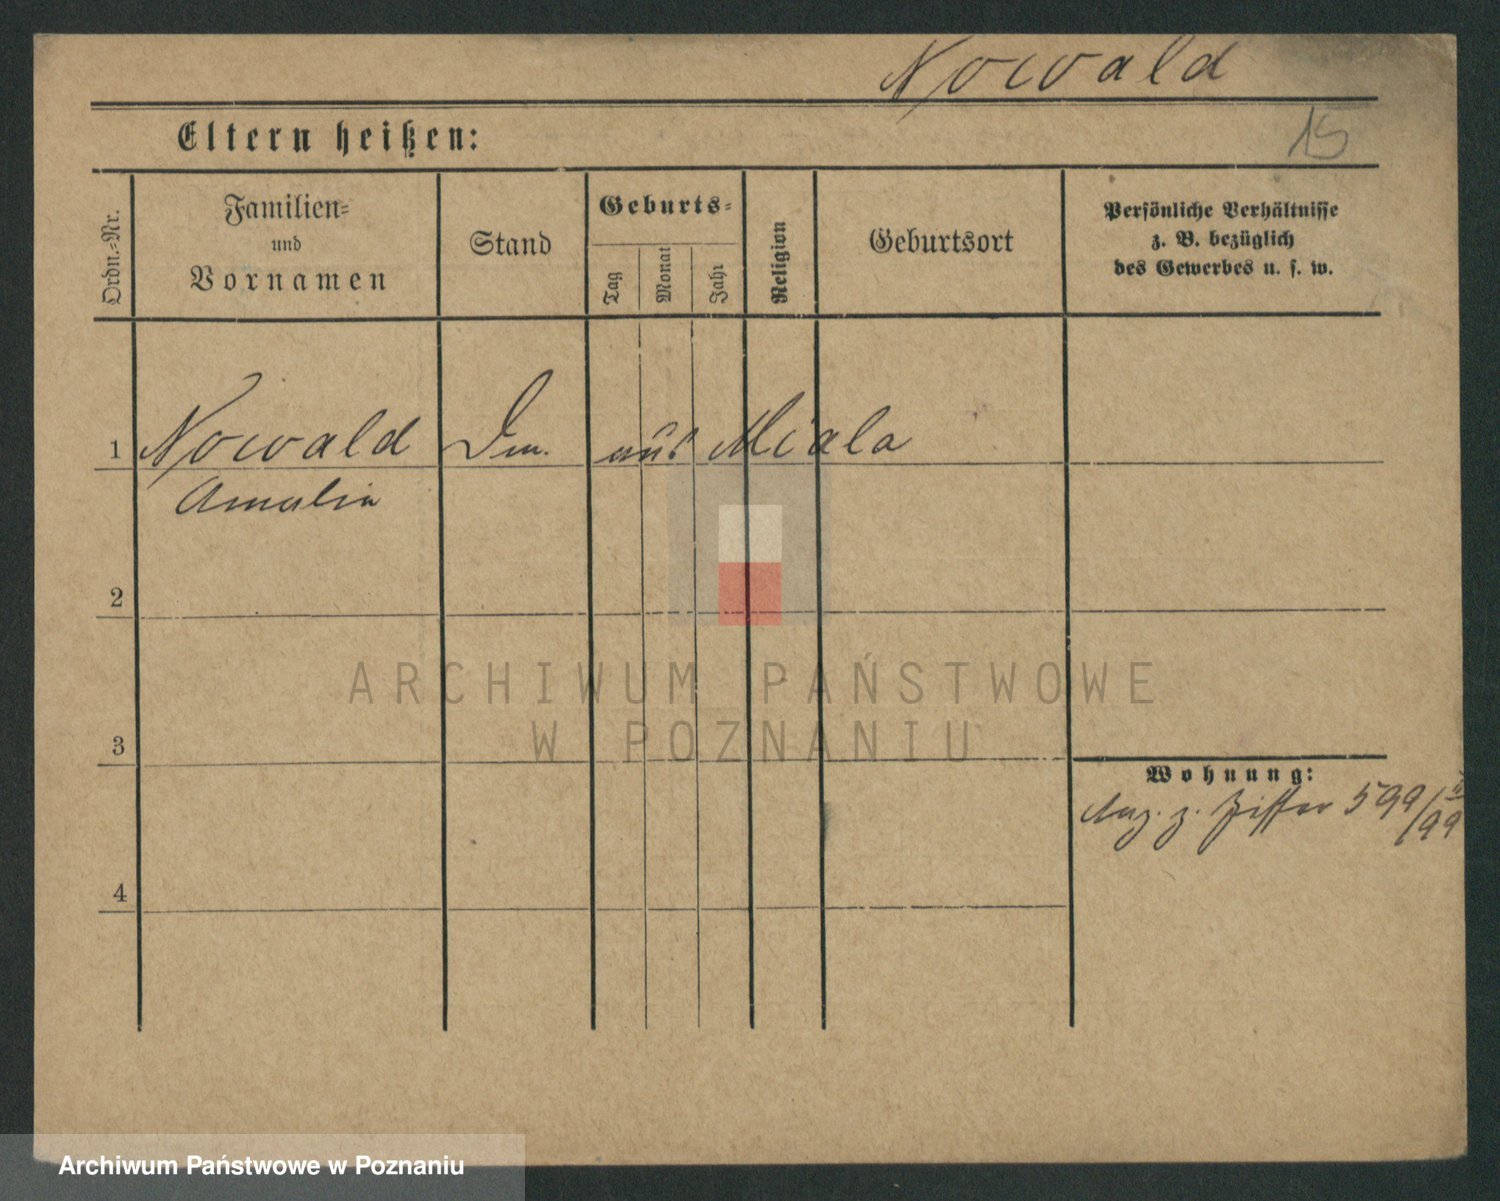 Nowald
15
Eltern heißen:
Ordn.-Nr.
Familien-
und
Vornamen
Stand
Geburts-
Tag
Monat
Jahr
Religion
Geburtsort
Persönliche Verhältnisse
z. B. bezüglich
des Gewerbes u. s. w.
1 Nowald aus Miala
Amalie
2
3
4
Wohnung:
z. Ziffer 599/
99
ARCHIWUM PAŃSTWOWE
W POZNANIU
Archiwum Państwowe w Poznaniu